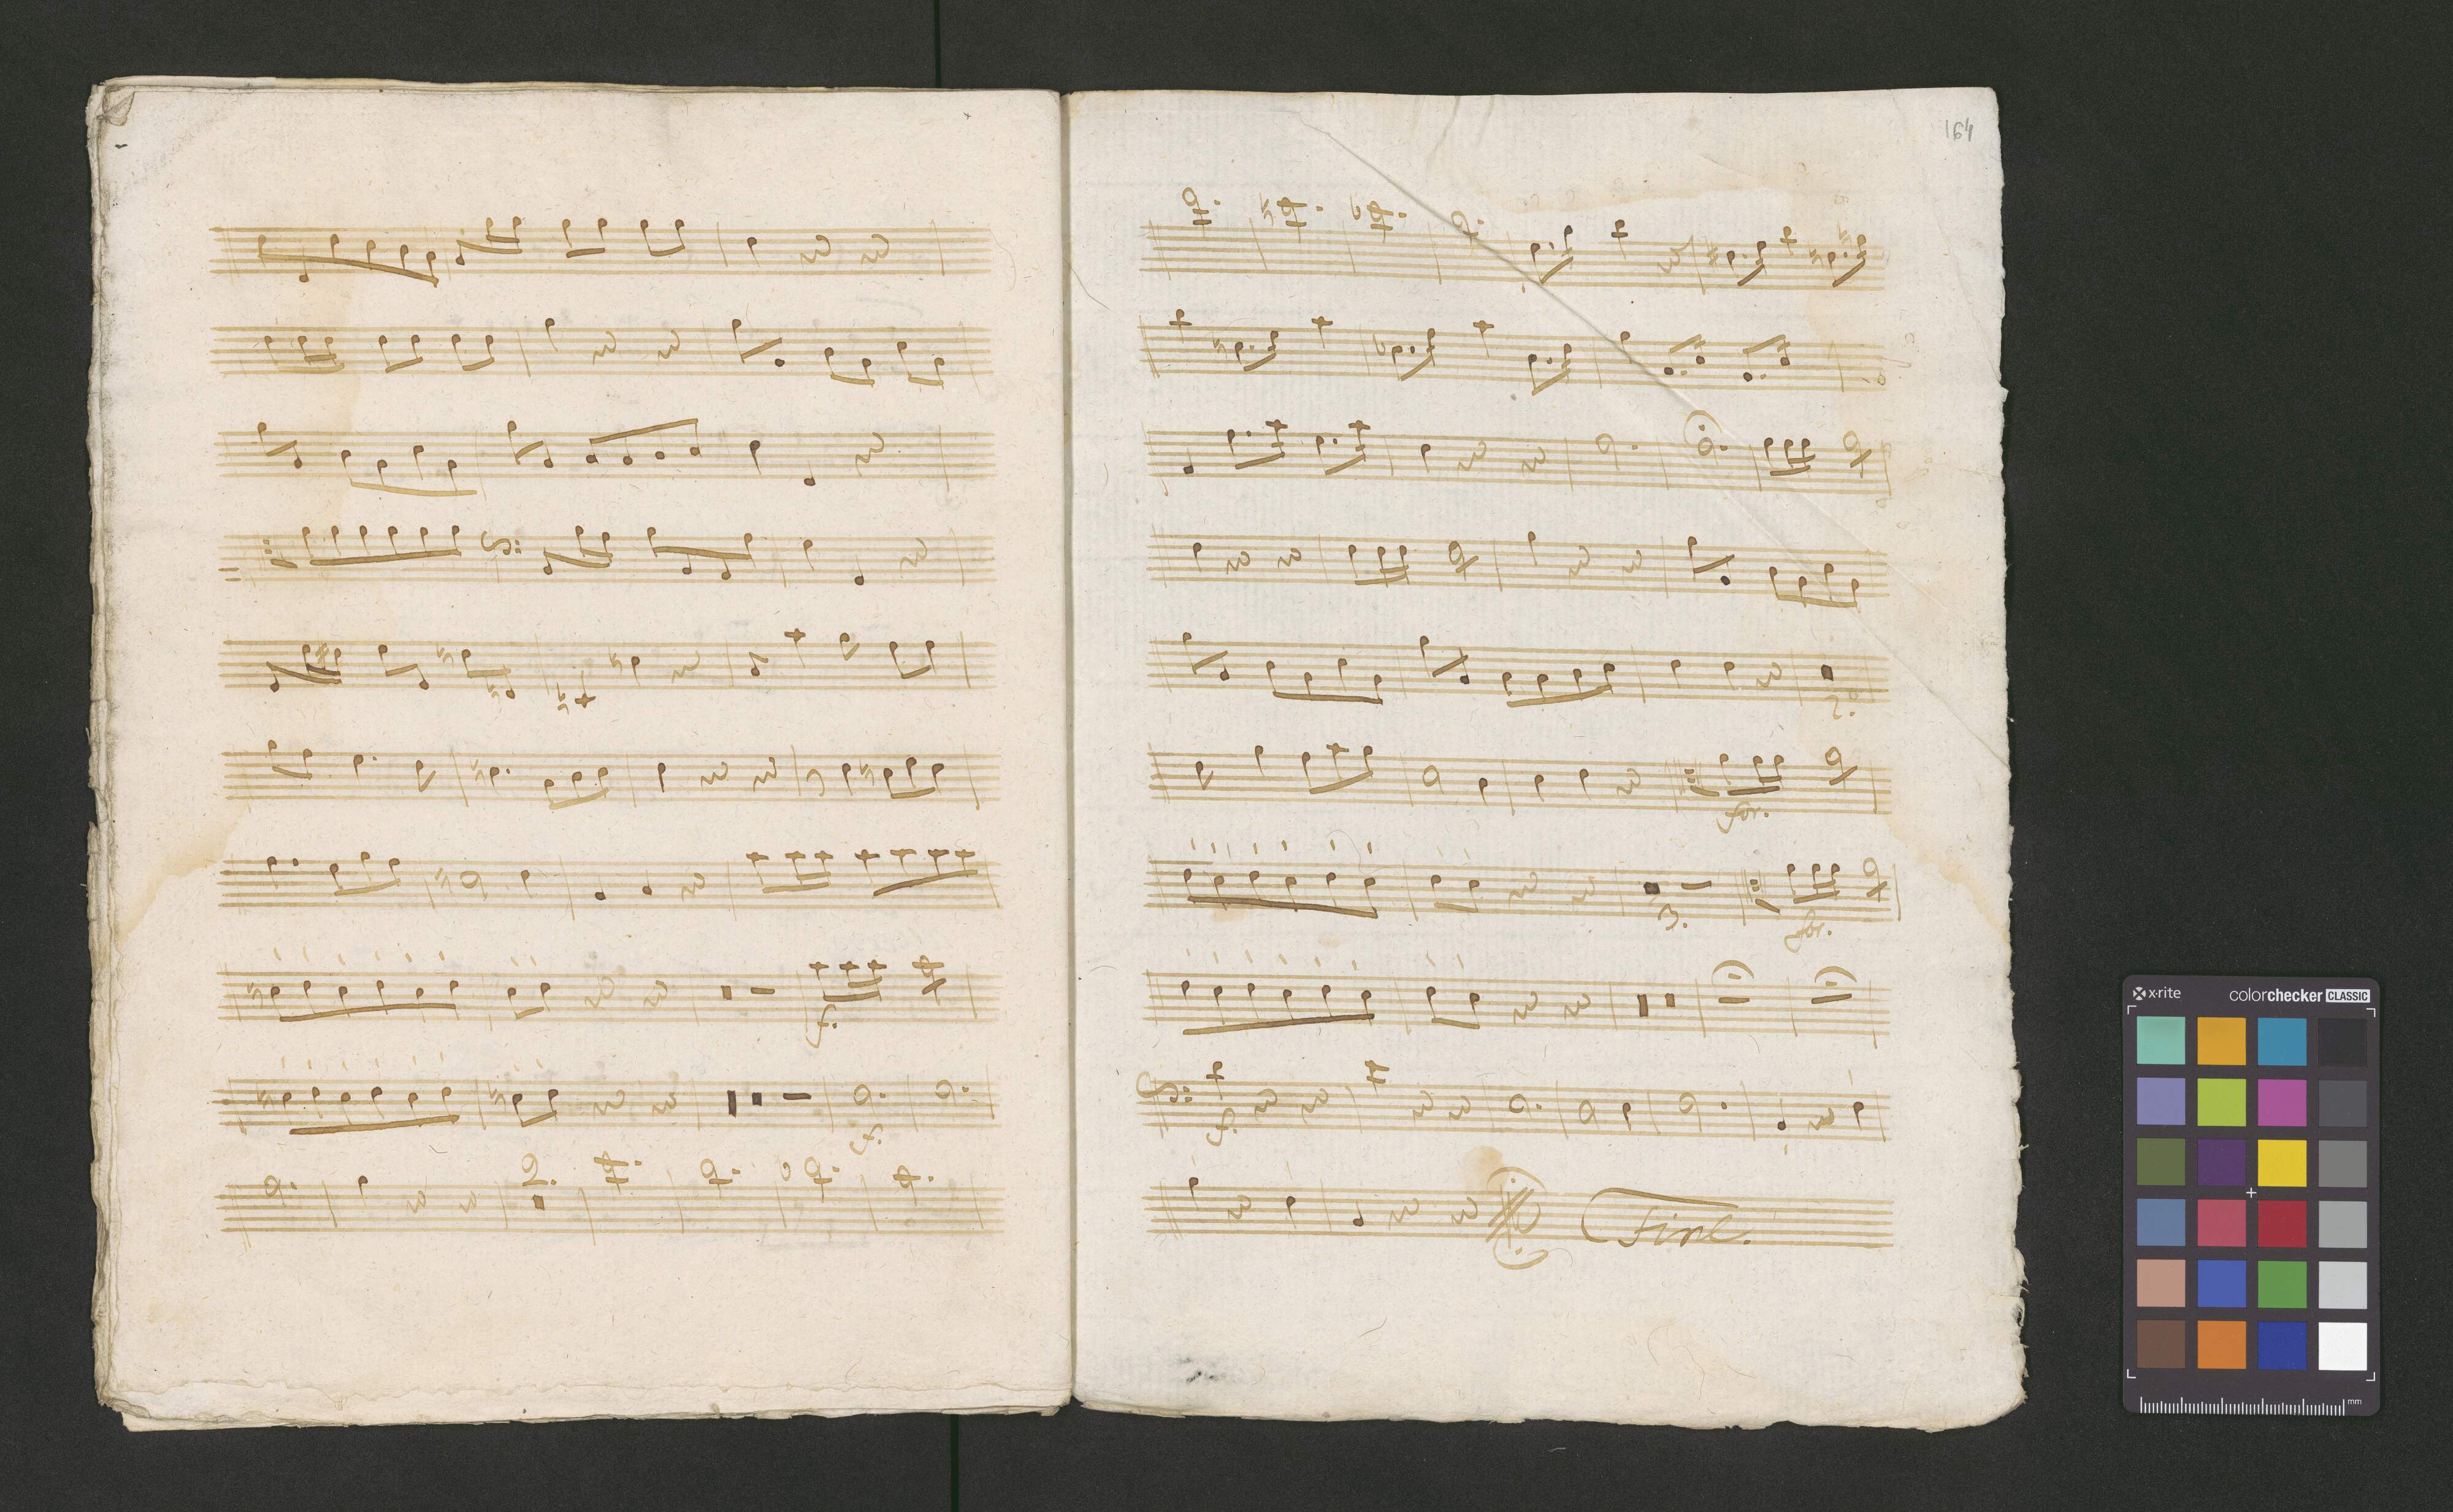 f.
f.
2.
164
2.
for.
3.
for.
f.
Fine.
x·rite colorchecker CLASSIC
mm